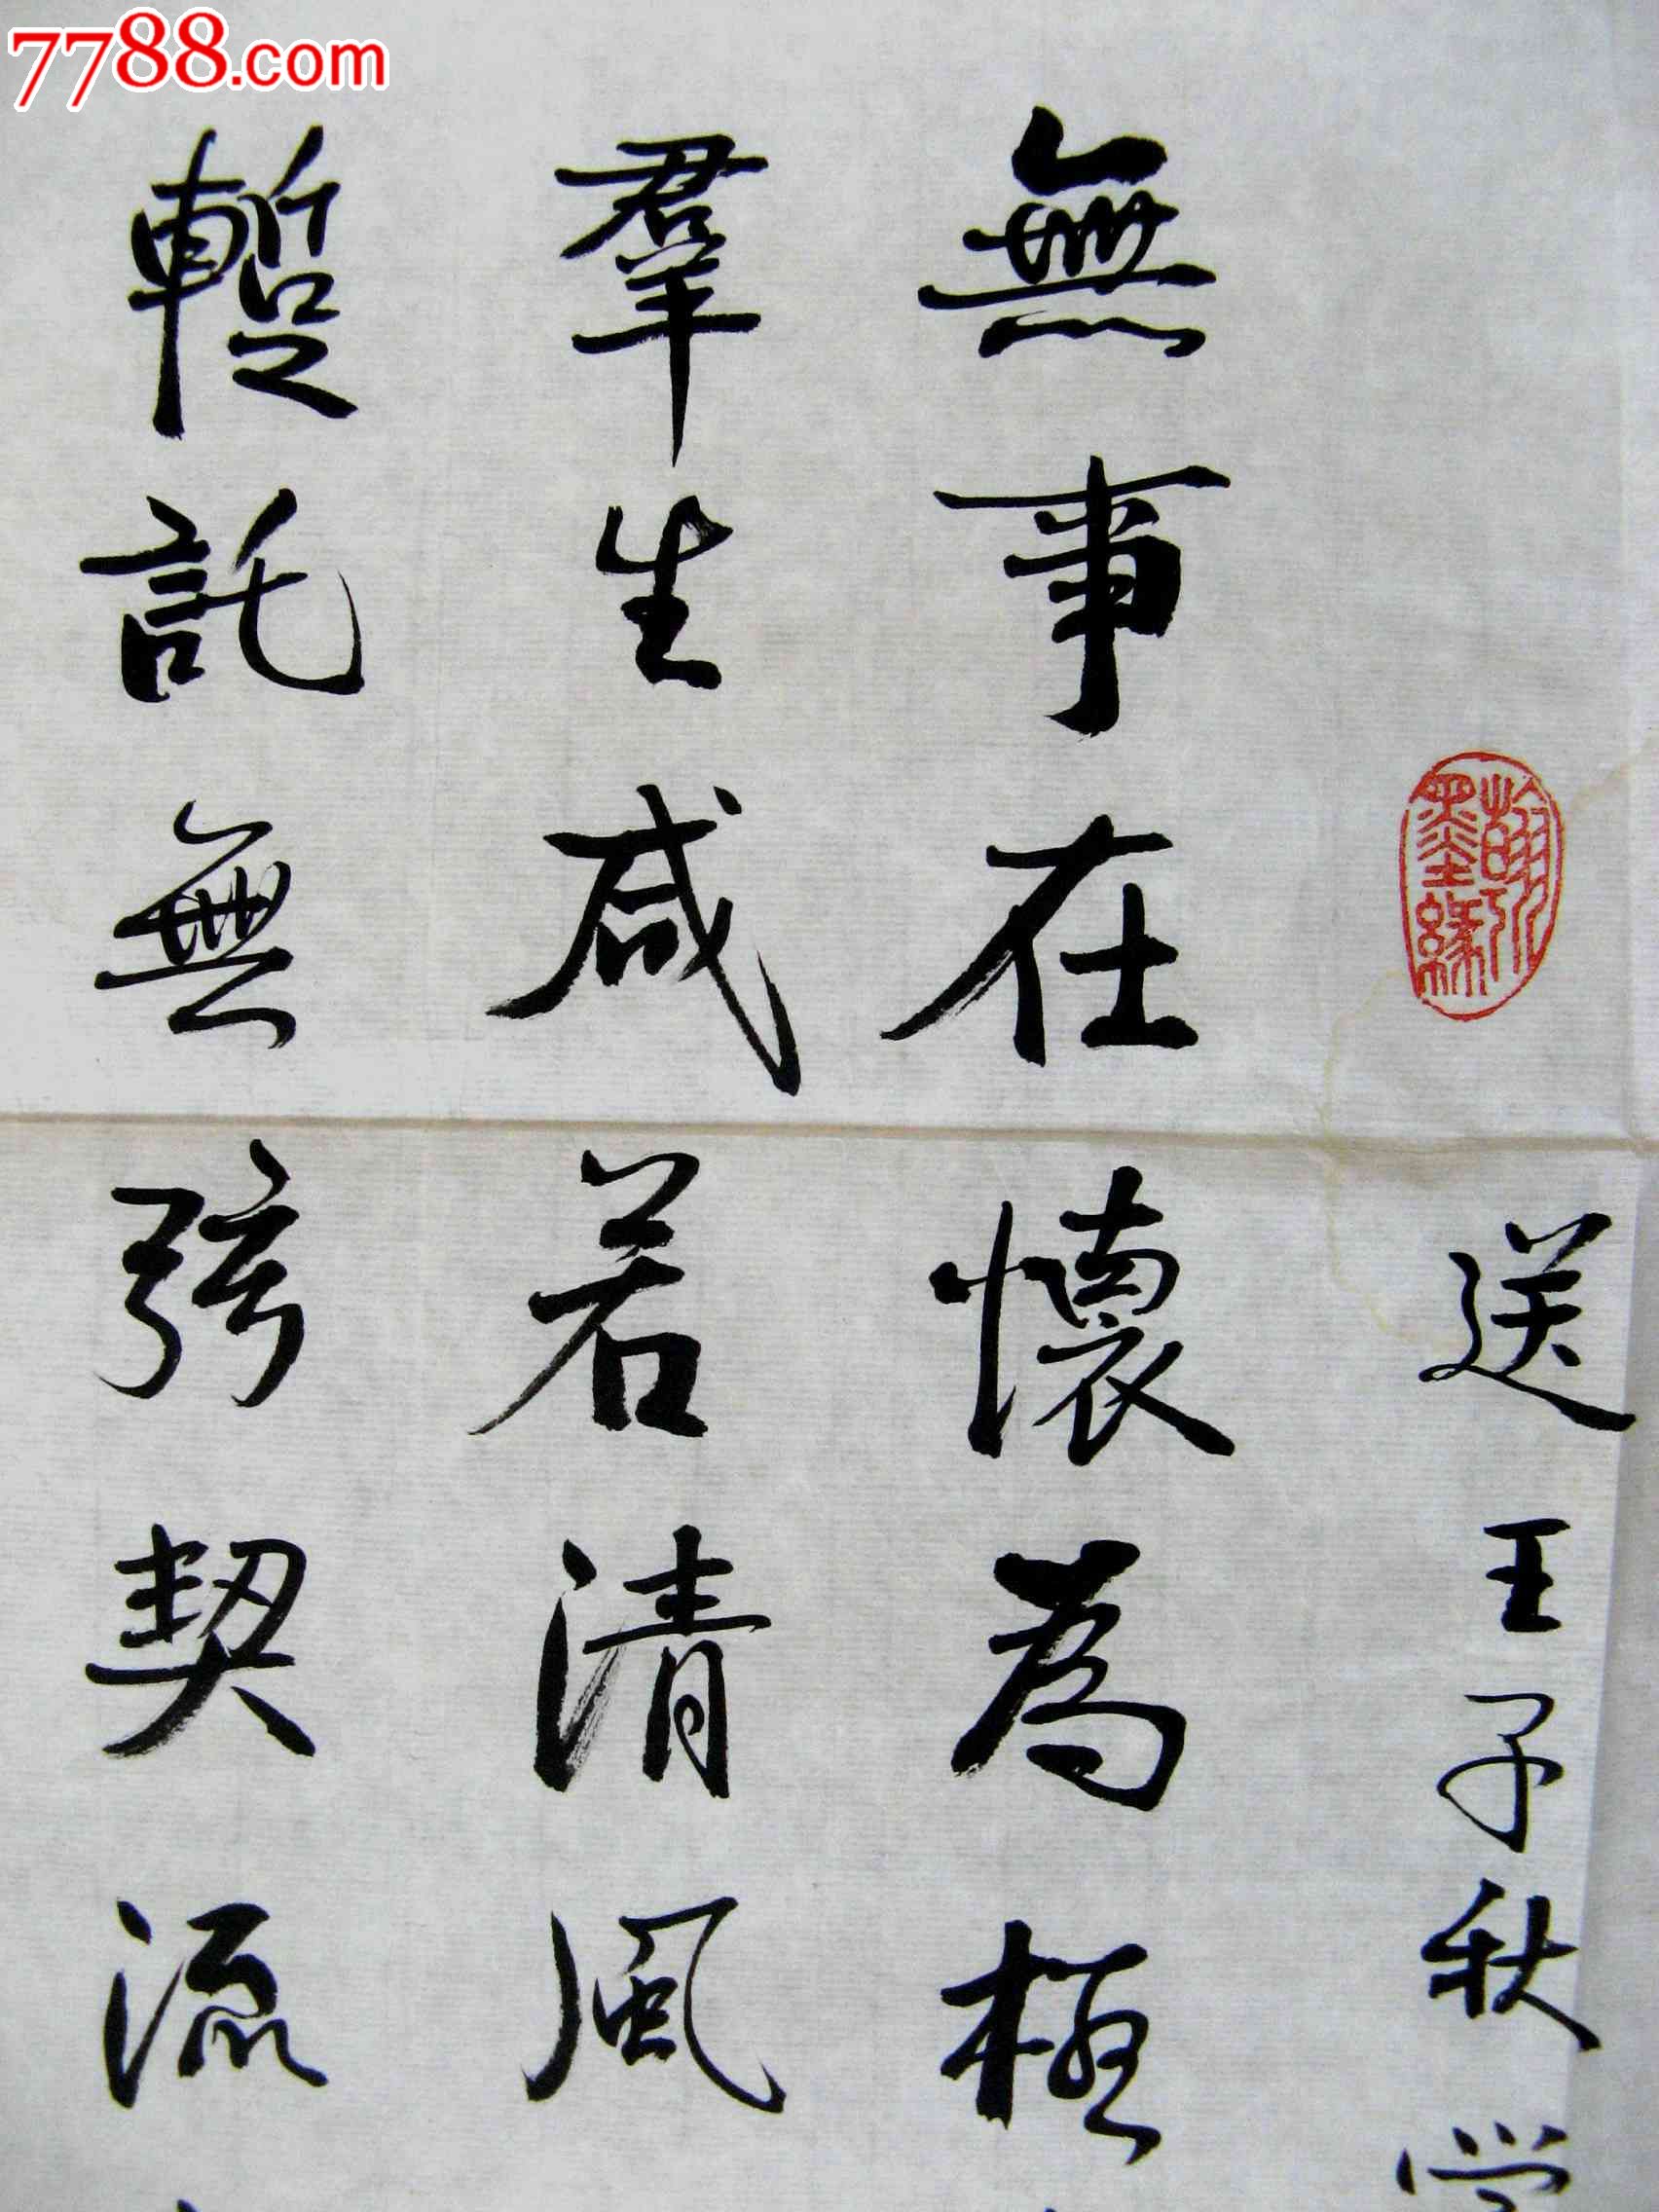 7788.com
翰墨緣
送王子秋
無事在懷為極
羣生咸若清風
蹔託無弦琴流